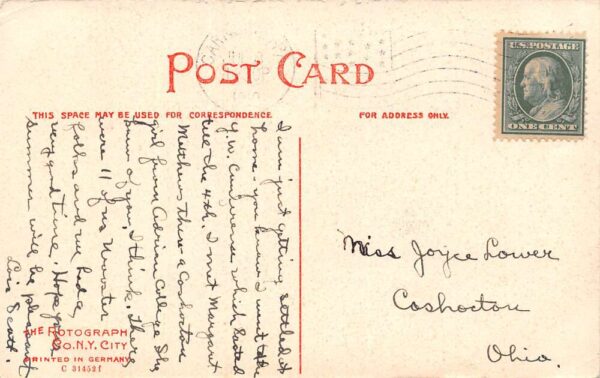 POST CARD
U.S.POSTAGE
ONE CENT
THIS SPACE MAY BE USED FOR CORRESPONDENCE.
FOR ADDRESS ONLY.
I am just getting settled at
home - you know I went to the
Y.W. Conference which lasted
till the 4th. I met Margaret
Mathews there a Coshocton
girl from Adrian College. She
knew of you, I think. There
were 11 of us Wooster
folks and we had a
very good time. Hope your
summer will be pleasant
Lois Scott.
Miss Joyce Lower
Coshocton
Ohio.
THE ROTOGRAPH
CO. N.Y. CITY
PRINTED IN GERMANY
C 31452 f